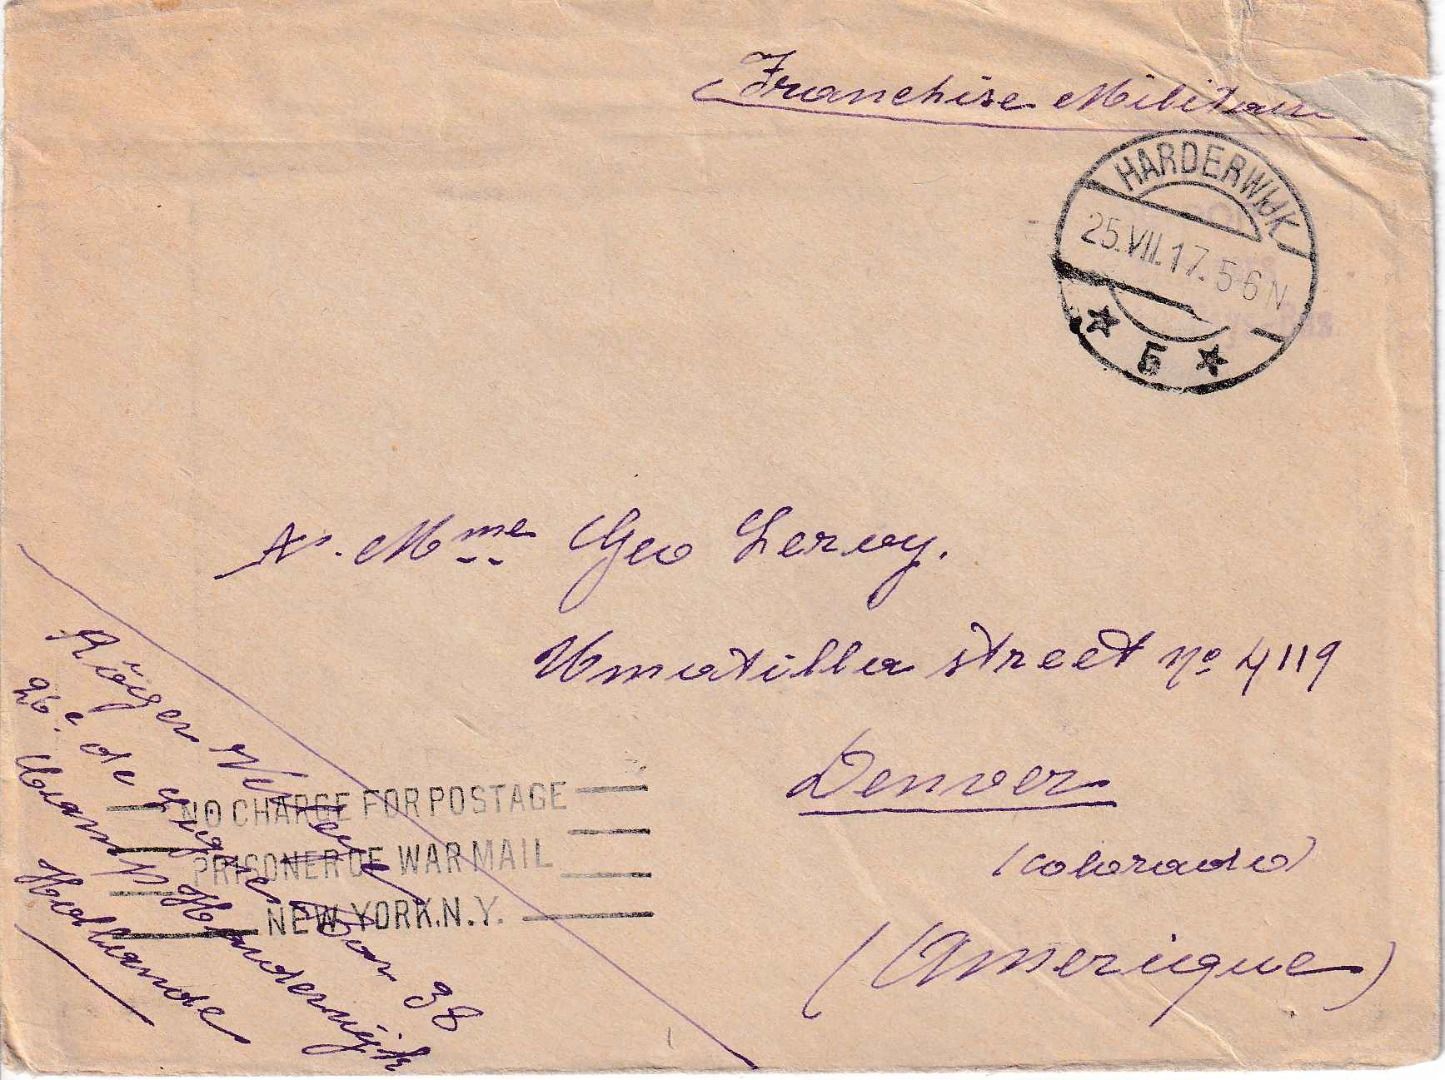 Franchise Militaire
HARDERWIJK
25.VII.17. 5-6 N
5
A. Mme Geo Leroy.
Umatilla street no 4119
Denver
(Colorado)
(Amerique)
NO CHARGE FOR POSTAGE
PRISONER OF WAR MAIL
NEW YORK. N.Y.
26e de Ligne 38
Camp Harderwijk
Hollande